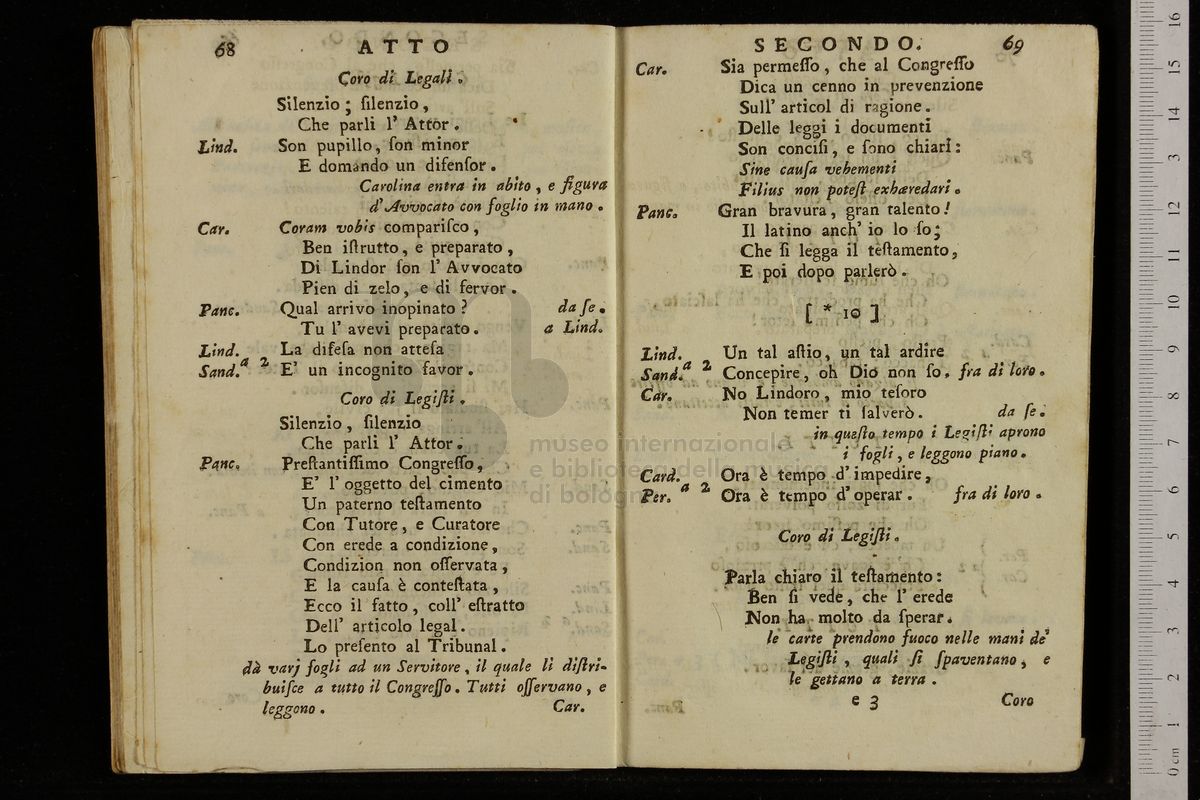 68 ATTO
Coro di Legali.
Silenzio; ſilenzio,
Che parli l' Attor.
Lind. Son pupillo, ſon minor
E domando un difenſor.
Carolina entra in abito, e figura
d'Avvocato con foglio in mano.
Car. Coram vobis compariſco,
Ben iſtrutto, e preparato,
Di Lindor ſon l' Avvocato
Pien di zelo, e di fervor.
Panc. Qual arrivo inopinato? da ſe.
Tu l' avevi preparato. a Lind.
Lind. La difeſa non atteſa
Sand. a 2 E' un incognito favor.
Coro di Legiſti.
Silenzio, ſilenzio
Che parli l' Attor.
Panc. Preſtantiſſimo Congreſſo,
E' l' oggetto del cimento
Un paterno teſtamento
Con Tutore, e Curatore
Con erede a condizione,
Condizion non oſſervata,
E la cauſa è conteſtata,
Ecco il fatto, coll' eſtratto
Dell' articolo legal.
Lo preſento al Tribunal.
dà varj fogli ad un Servitore, il quale li diſtri-
buiſce a tutto il Congreſſo. Tutti oſſervano, e
leggono. Car.
SECONDO. 69
Car. Sia permeſſo, che al Congreſſo
Dica un cenno in prevenzione
Sull' articol di ragione.
Delle leggi i documenti
Son conciſi, e ſono chiari:
Sine cauſa vehementi
Filius non poteſt exhæredari.
Panc. Gran bravura, gran talento!
Il latino anch' io lo ſo;
Che ſi legga il teſtamento,
E poi dopo parlerò.
[ * 10 ]
Lind. Un tal aſtio, un tal ardire
Sand. a 2 Concepire, oh Dio non ſo. fra di loro.
Car. No Lindoro, mio teſoro
Non temer ti ſalverò. da ſe.
in queſto tempo i Legiſti aprono
i fogli, e leggono piano.
Card. Ora è tempo d' impedire,
Per. a 2 Ora è tempo d' operar. fra di loro.
Coro di Legiſti.
Parla chiaro il teſtamento:
Ben ſi vede, che l' erede
Non ha molto da ſperar.
le carte prendono fuoco nelle mani de'
Legiſti, quali ſi ſpaventano, e
le gettano a terra.
e 3 Coro
museo internazionale
e biblioteca della musica
di bologna
0 cm 1 2 3 4 5 6 7 8 9 10 11 12 13 14 15 16